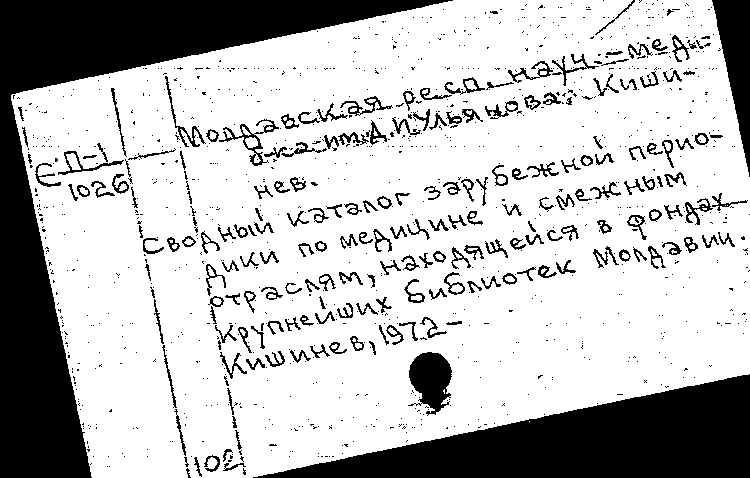 Молдавская респ. науч.-меди-
б-ка им. Д.И. Ульянова. Киши-
нев.
СП-1
1026
Сводный каталог зарубежной перио-
дики по медицине и смежным
отраслям, находящейся в фондах
крупнейших библиотек Молдавии.
Кишинев, 1972-
102